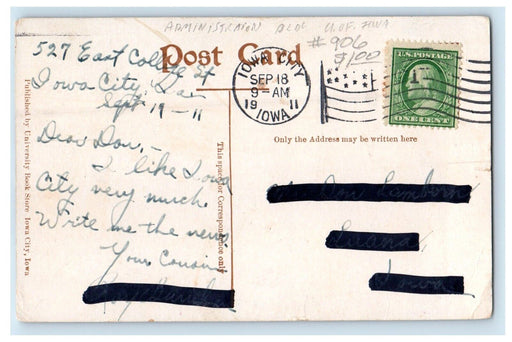 ADMINISTRATION BLDG U. OF IOWA
# 906
$1.00
Post Card
527 East College St
Iowa City, Ia
Sept 19 - 11
Dear Don, -
I like Iowa
City very much.
Write me the news.
Your Cousin
IOWA CITY
SEP 18
9 - AM
19 11
IOWA
U.S. POSTAGE
ONE CENT
Only the Address may be written here
Iowa
This space for Correspondence only
Published by University Book Store Iowa City, Iowa